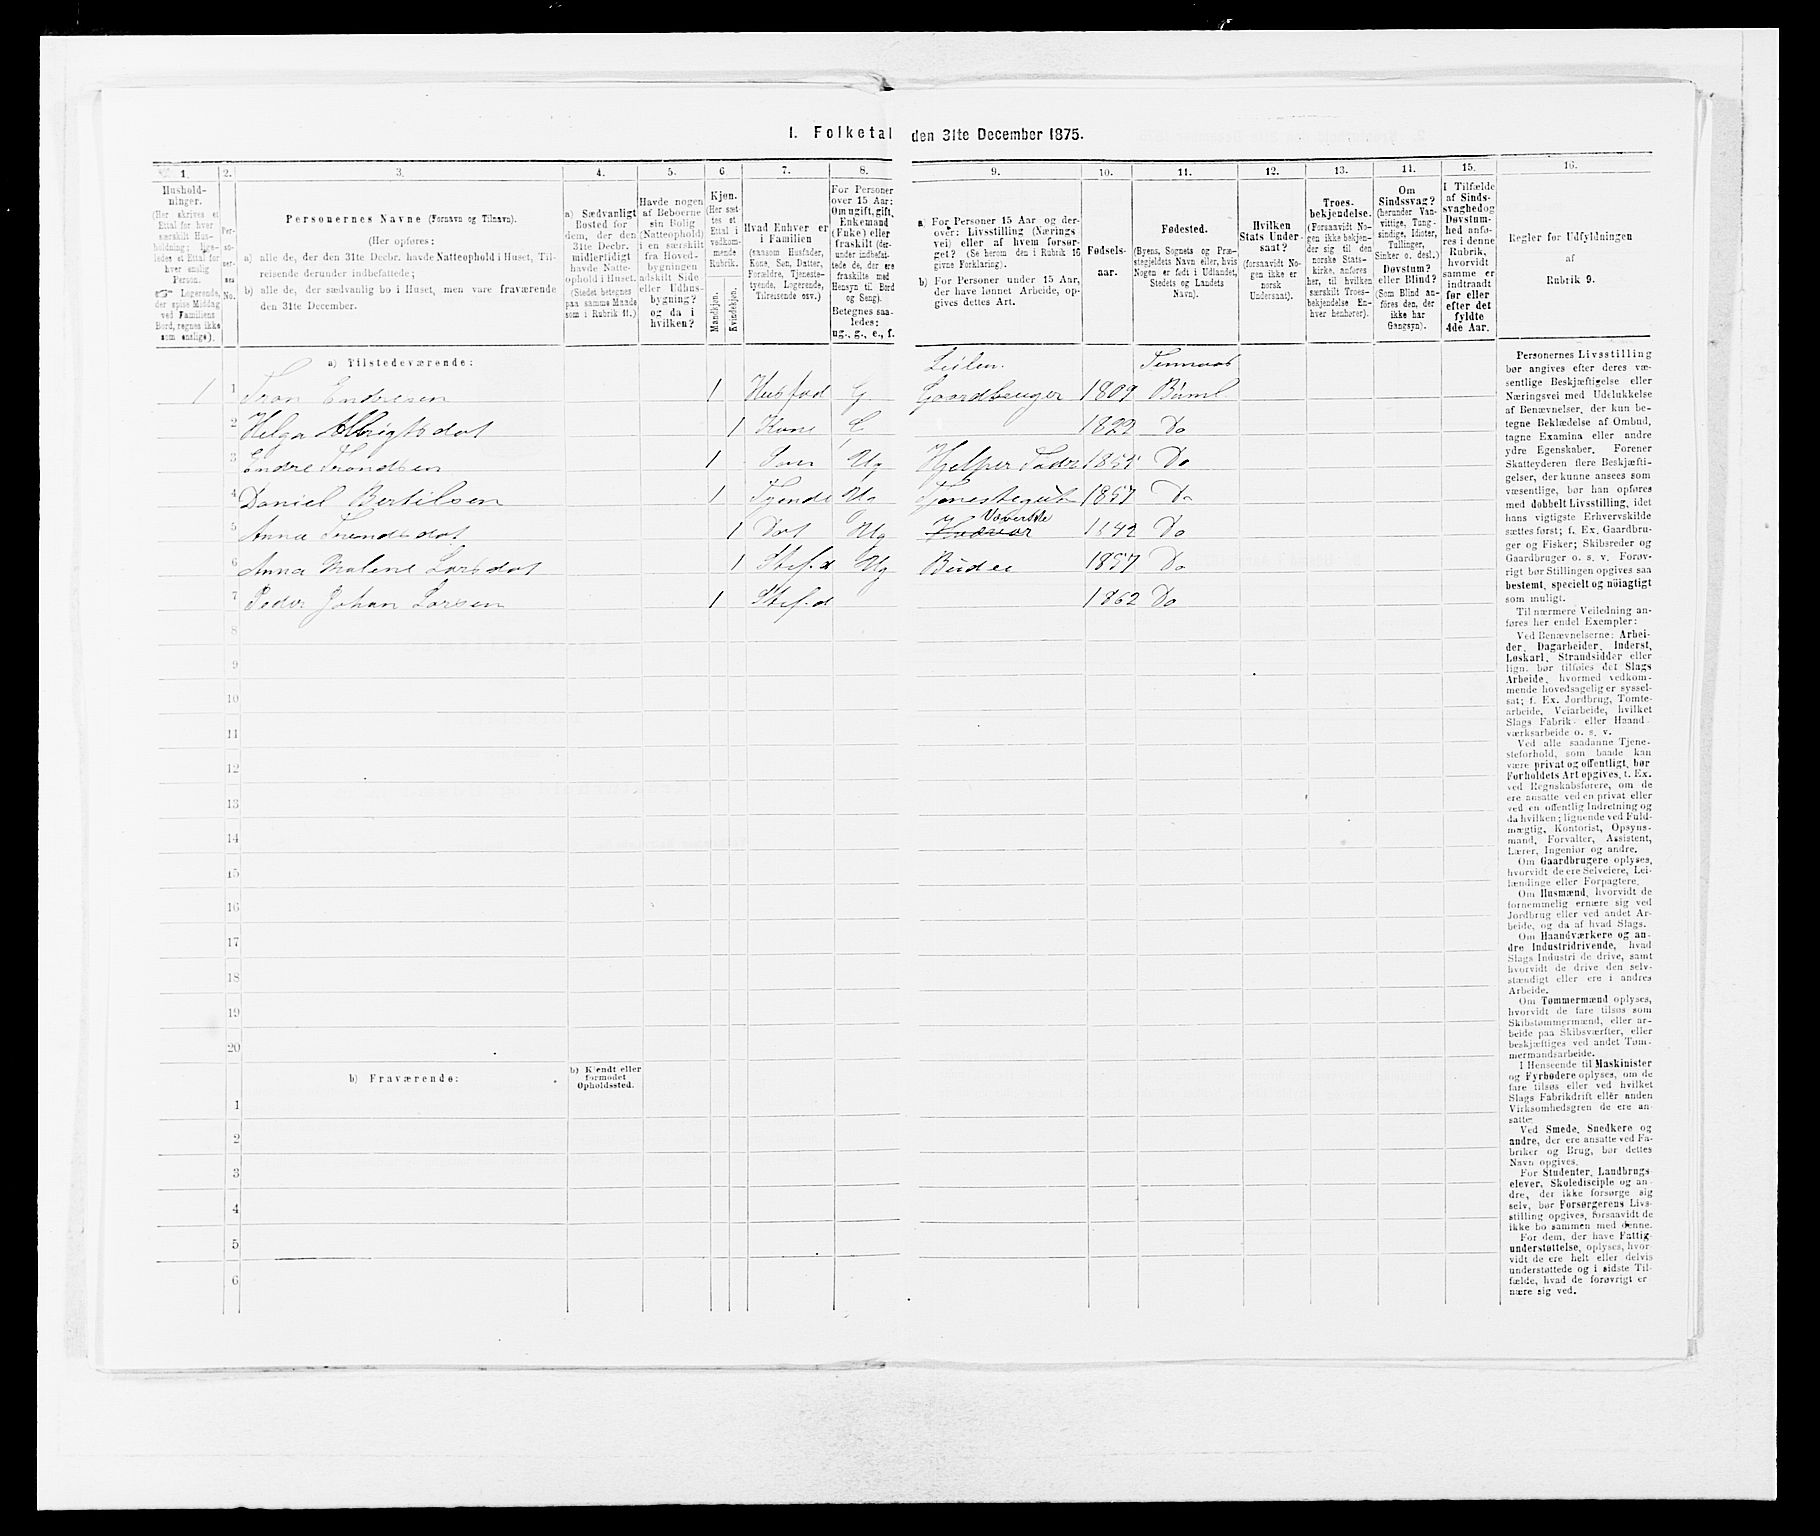 1. Folketal den 31te December 1875.
1. 2. 3. 4. 5. 6 7. 8. 9. 10. 11. 12. 13. 14. 15. 16.
Hushold-
ninger.
(Her skrives et
Ettal for hver
særskilt Hus-
holdning; lige-
ledes et Ettal for
hver enslig
Person.
☞ Logerende,
der spise Middag
ved Familiens
Bord, regnes ikke
som enslige).
Per-
so-
ner-
nes
No.
Personernes Navne (Fornavn og Tilnavn).
(Her opføres:
a) alle de, der den 31te Decbr. havde Natteophold i Huset, Til-
reisende derunder indbefattede;
b) alle de, der sædvanlig bo i Huset, men vare fraværende
den 31te December.
a) Sædvanligt
Bosted for
dem, der den
31te Decbr.
midlertidigt
havde Natte-
ophold i Huset.
(Stedet betegnes
paa samme Maade
som i Rubrik 11.)
Havde nogen
af Beboerne
sin Bolig
(Natteophold)
i en særskilt
fra Hoved-
bygningen
adskilt Side
eller Udhus-
bygning?
og da i
hvilken?
Kjøn.
(Her sæt-
tes et
Ettal i
vedkom-
mende
Rubrik.
Mandkjøn.
Kvindekjøn.
Hvad Enhver er
i Familien
(saasom Husfader,
Kone, Søn, Datter,
Forældre, Tjeneste-
tyende, Logerende,
Tilreisende osv.)
For Personer
over 15 Aar:
Om ugift, gift,
Enkemand
(Enke) eller
fraskilt (der-
under indbefat-
tede de, der ere
fraskilte med
Hensyn til Bord
og Seng).
Betegnes saa-
ledes:
ug., g., e., f.
a) For Personer 15 Aar og der-
over: Livsstilling (Nærings
vei) eller af hvem forsør-
get? (Se herom den i Rubrik 16
givne Forklaring).
b) For Personer under 15 Aar,
der have lønnet Arbeide, op-
gives dettes Art.
Fødsels-
aar.
Fødested.
(Byens, Sognets og Præ-
stegjeldets Navn eller, hvis
Nogen er født i Udlandet,
Stedets og Landets
Navn).
Hvilken
Stats Under-
saat?
(forsaavidt No-
gen ikke er
norsk
Undersaat).
Troes-
bekjendelse.
(Forsaavidt No-
gen ikke bekjen-
der sig til den
norske Stats-
kirke, anføres
her, til hvilken
særskilt Troes-
bekjendelse En-
hver henhører).
Om
Sindssvag?
(herunder Van-
vittige, Tung-
sindige, Idioter,
Tullinger,
Sinker o. desl.)
Døvstum?
eller Blind?
(Som Blind an-
føres den, der
ikke har
Gangsyn).
I Tilfælde
af Sinds-
svaghed og
Døvstum-
hed anfø-
res i denne
Rubrik,
hvorvidt
samme er
indtraadt
før eller
efter det
fyldte
4de Aar.
Regler for Udfyldningen
af
Rubrik 9.
a) Tilstedeværende:
Leilen. Finnaas
1 1 Tron Endresen 1 Husfad G Gaardbruger 1809 Bøml
2 Helga Albrigtsdat 1 Kone G 1822 Do
3 Endre Trondsen 1 Søn Ug Hjelper Fader 1855 Do
4 Daniel Bertilsen 1 Tyende Ug Tjenestegut 1857 Do
Væverske
5 Anna Trondsdat 1 Dat Ug 1842 Do
6 Anna Malene Larsdat 1 Stef.d Ug Budei 1857 Do
7 Peder Johan Larsen 1 Stef.d 1862 Do
8
9
10
11
12
13
14
15
16
17
18
19
20
b) Fraværende:
b) Kjendt eller
formodet
Opholdssted.
1
2
3
4
5
6
Personernes Livsstilling
bør angives efter deres væ-
sentlige Beskjæftigelse eller
Næringsvei med Udelukkelse
af Benævnelser, der kun be-
tegne Beklædelse af Ombud,
tagne Examina eller andre
ydre Egenskaber. Forener
Skatteyderen flere Beskjæfti-
gelser, der kunne ansees som
væsentlige, bør han opføres
med dobbelt Livsstilling, idet
hans vigtigste Erhvervskilde
sættes først; f. Ex. Gaardbru-
ger og Fisker; Skibsreder og
Gaardbruger o. s. v. Forøv-
rigt bør Stillingen opgives saa
bestemt, specielt og nöiagtigt
som muligt.
Til nærmere Veiledning an-
føres her endel Exempler:
Ved Benævnelserne: Arbei-
der, Dagarbeider, Inderst,
Løskarl, Strandsidder eller
lign. bør tilføies det Slags
Arbeide, hvormed vedkom-
mende hovedsagelig er syssel-
sat; f. Ex. Jordbrug, Tomte-
arbeide, Veiarbeide, hvilket
Slags Fabrik- eller Haand-
værksarbeide o. s. v.
Ved alle saadanne Tjene-
steforhold, som baade kan
være privat og offentligt, bør
Forholdets Art opgives, t. Ex.
ved Regnskabsførere, om de
ere ansatte ved en privat eller
ved en offentlig Indretning og
da hvilken; lignende ved Fuld-
mægtig, Kontorist, Opsyns-
mand, Forvalter, Assistent,
Lærer, Ingeniør og andre.
Om Gaardbrugere oplyses,
hvorvidt de ere Selveiere, Lei-
lændinge eller Forpagtere.
Om Husmænd, hvorvidt de
fornemmelig ernære sig ved
Jordbrug eller ved andet Ar-
beide, og da af hvad Slags.
Om Haandværkere og an-
dre Industridrivende, hvad
Slags Industri de drive, samt
hvorvidt de drive den selv-
stændigt eller ere i andres
Arbeide.
Om Tømmermænd oplyses,
hvorvidt de fare tilsøs som
Skibstømmermænd, eller ar-
beide paa Skibsværfter, eller
beskjæftiges ved andet Tøm-
mermandsarbeide.
I Henseende til Maskinister
og Fyrbødere oplyses, om de
fare tilsøs eller ved hvilket
Slags Fabrikdrift eller anden
Virksomhedsgren de ere an-
satte.
Ved Smede, Snedkere og
andre, der ere ansatte ved Fa-
briker og Brug, bør dettes
Navn opgives.
For Studenter, Landbrugs-
elever, Skoledisciple og an-
dre, der ikke forsørge sig
selv, bør Forsørgerens Livs-
stilling opgives, forsaavidt de
ikke bo sammen med denne.
For dem, der have Fattig-
understøttelse, oplyses, hvor-
vidt de ere helt eller delvis
understøttede og i sidste Til-
fælde, hvad de forøvrigt er-
nære sig ved.